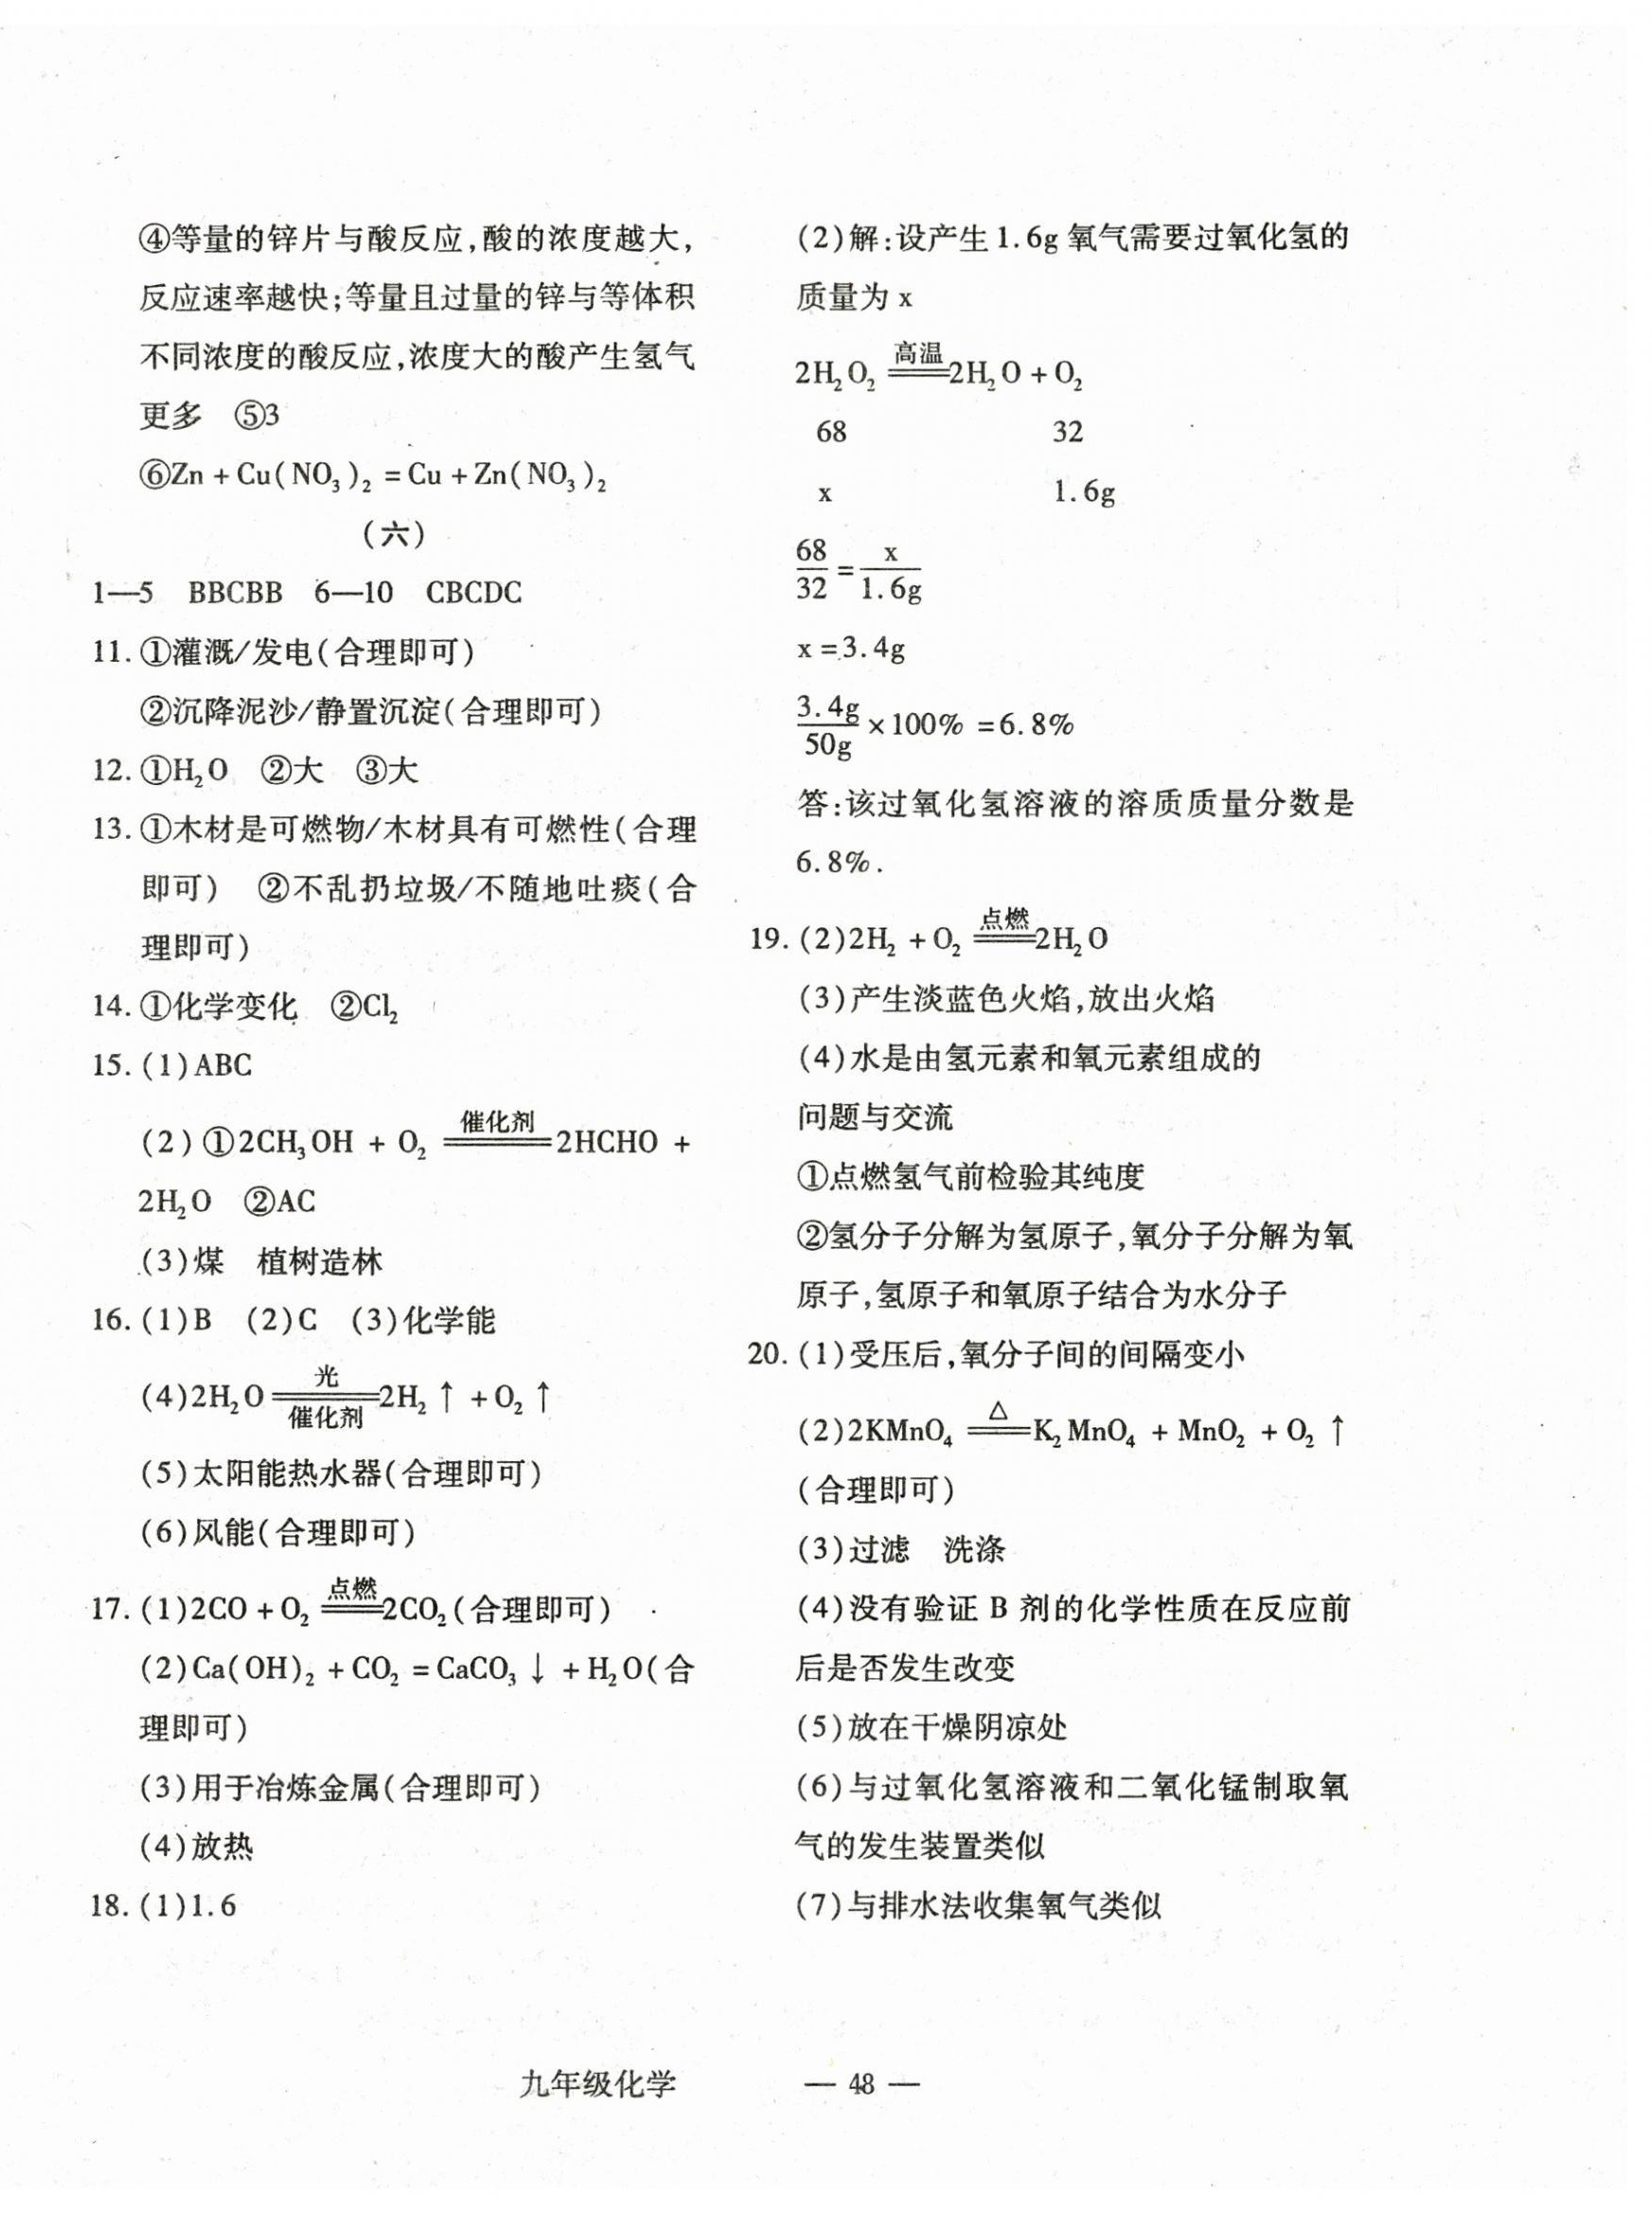 ④等量的锌片与酸反应,酸的浓度越大,
反应速率越快;等量且过量的锌与等体积
不同浓度的酸反应,浓度大的酸产生氢气
更多 ⑤3
⑥Zn + Cu(NO₃)₂ = Cu + Zn(NO₃)₂
(六)
1—5 BBCBB 6—10 CBCDC
11. ①灌溉/发电(合理即可)
②沉降泥沙/静置沉淀(合理即可)
12. ①H₂O ②大 ③大
13. ①木材是可燃物/木材具有可燃性(合理
即可) ②不乱扔垃圾/不随地吐痰(合
理即可)
14. ①化学变化 ②Cl₂
15. (1)ABC
(2)①2CH₃OH + O₂ ══催化剂══ 2HCHO +
2H₂O ②AC
(3)煤 植树造林
16. (1)B (2)C (3)化学能
(4)2H₂O ══光/催化剂══ 2H₂↑ + O₂↑
(5)太阳能热水器(合理即可)
(6)风能(合理即可)
17. (1)2CO + O₂ ══点燃══ 2CO₂(合理即可)
(2)Ca(OH)₂ + CO₂ = CaCO₃↓ + H₂O(合
理即可)
(3)用于冶炼金属(合理即可)
(4)放热
18. (1)1.6
(2)解:设产生1.6g氧气需要过氧化氢的
质量为x
2H₂O₂ ══高温══ 2H₂O + O₂
68 32
x 1.6g
68/32 = x/1.6g
x = 3.4g
3.4g/50g × 100% = 6.8%
答:该过氧化氢溶液的溶质质量分数是
6.8%.
19. (2)2H₂ + O₂ ══点燃══ 2H₂O
(3)产生淡蓝色火焰,放出火焰
(4)水是由氢元素和氧元素组成的
问题与交流
①点燃氢气前检验其纯度
②氢分子分解为氢原子,氧分子分解为氧
原子,氢原子和氧原子结合为水分子
20. (1)受压后,氧分子间的间隔变小
(2)2KMnO₄ ══△══ K₂MnO₄ + MnO₂ + O₂↑
(合理即可)
(3)过滤 洗涤
(4)没有验证B剂的化学性质在反应前
后是否发生改变
(5)放在干燥阴凉处
(6)与过氧化氢溶液和二氧化锰制取氧
气的发生装置类似
(7)与排水法收集氧气类似
九年级化学 — 48 —